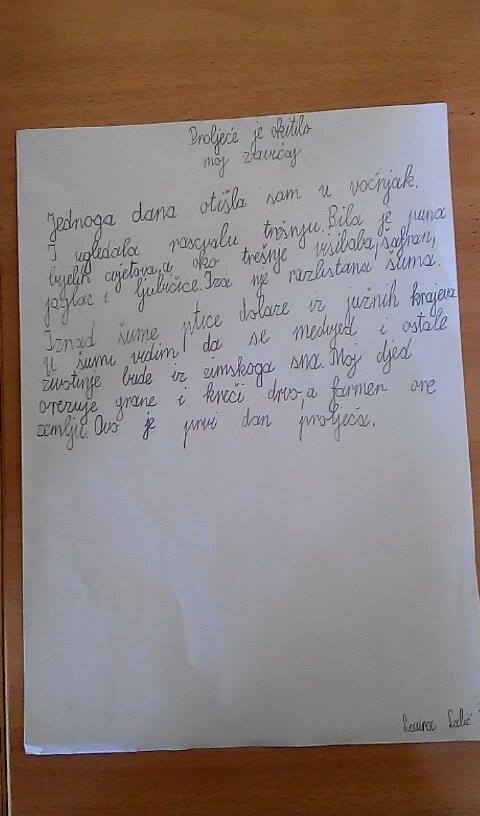 Proljeće je okitilo
moj zavičaj
Jednoga dana otišla sam u voćnjak.
I ugledala rascvalu trešnju. Bila je puna
bijelih cvjetova, a oko trešnje visibaba, šafran,
jaglac i ljubičice. Iza nje razlistana šuma.
Iznad šume ptice dolaze iz južnih krajeva.
U šumi vidim da se medvjed i ostale
životinje bude iz zimskoga sna. Moj djed
orezuje grane i kreči drvo, a farmer ore
zemlju. Ovo je prvi dan proljeća.
Laura